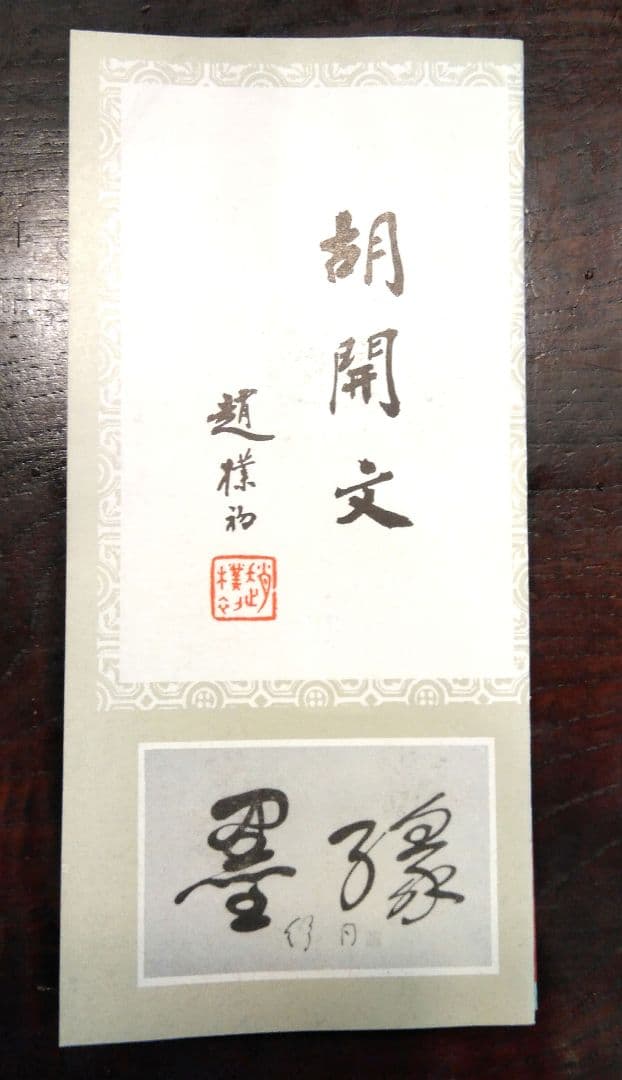 胡開文
趙樸初
趙樸初
墨緣
舒同